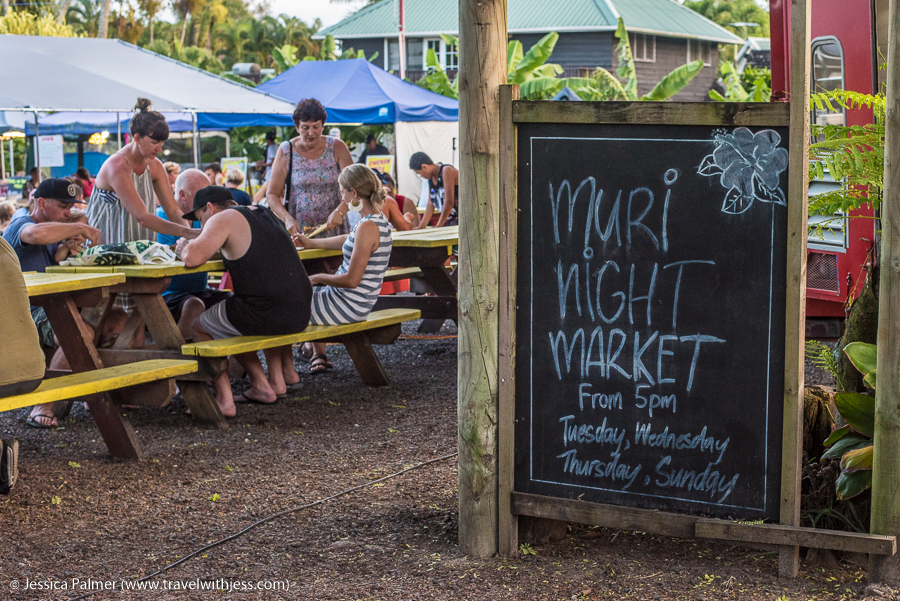 MURI
NIGHT
MARKET
From 5pm
Tuesday, Wednesday
Thursday, Sunday
© Jessica Palmer (www.travelwithjess.com)